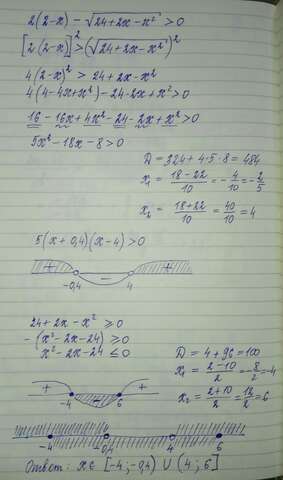 2(2-x) - √24+2x-x² > 0
[2(2-x)]² > (√24+2x-x²)²
4(2-x)² > 24+2x-x²
4(4-4x+x²)-24-2x+x²>0
16-16x+4x²-24-2x+x²>0
5x²-18x-8>0
D=324+4·5·8=484
x₁ = 18-22/10 = -4/10 = -2/5
x₂ = 18+22/10 = 40/10 = 4
5(x+0,4)(x-4)>0
+ - +
-0,4 4
24+2x-x² ≥ 0
-(x²-2x-24) ≥ 0
x²-2x-24 ≤ 0
D = 4+96=100
x₁ = 2-10/2 = -8/2 = -4
x₂ = 2+10/2 = 12/2 = 6
+ - +
-4 6
-4 -0,4 4 6
Ответ: x∈ [-4;-0,4) ∪ (4; 6]